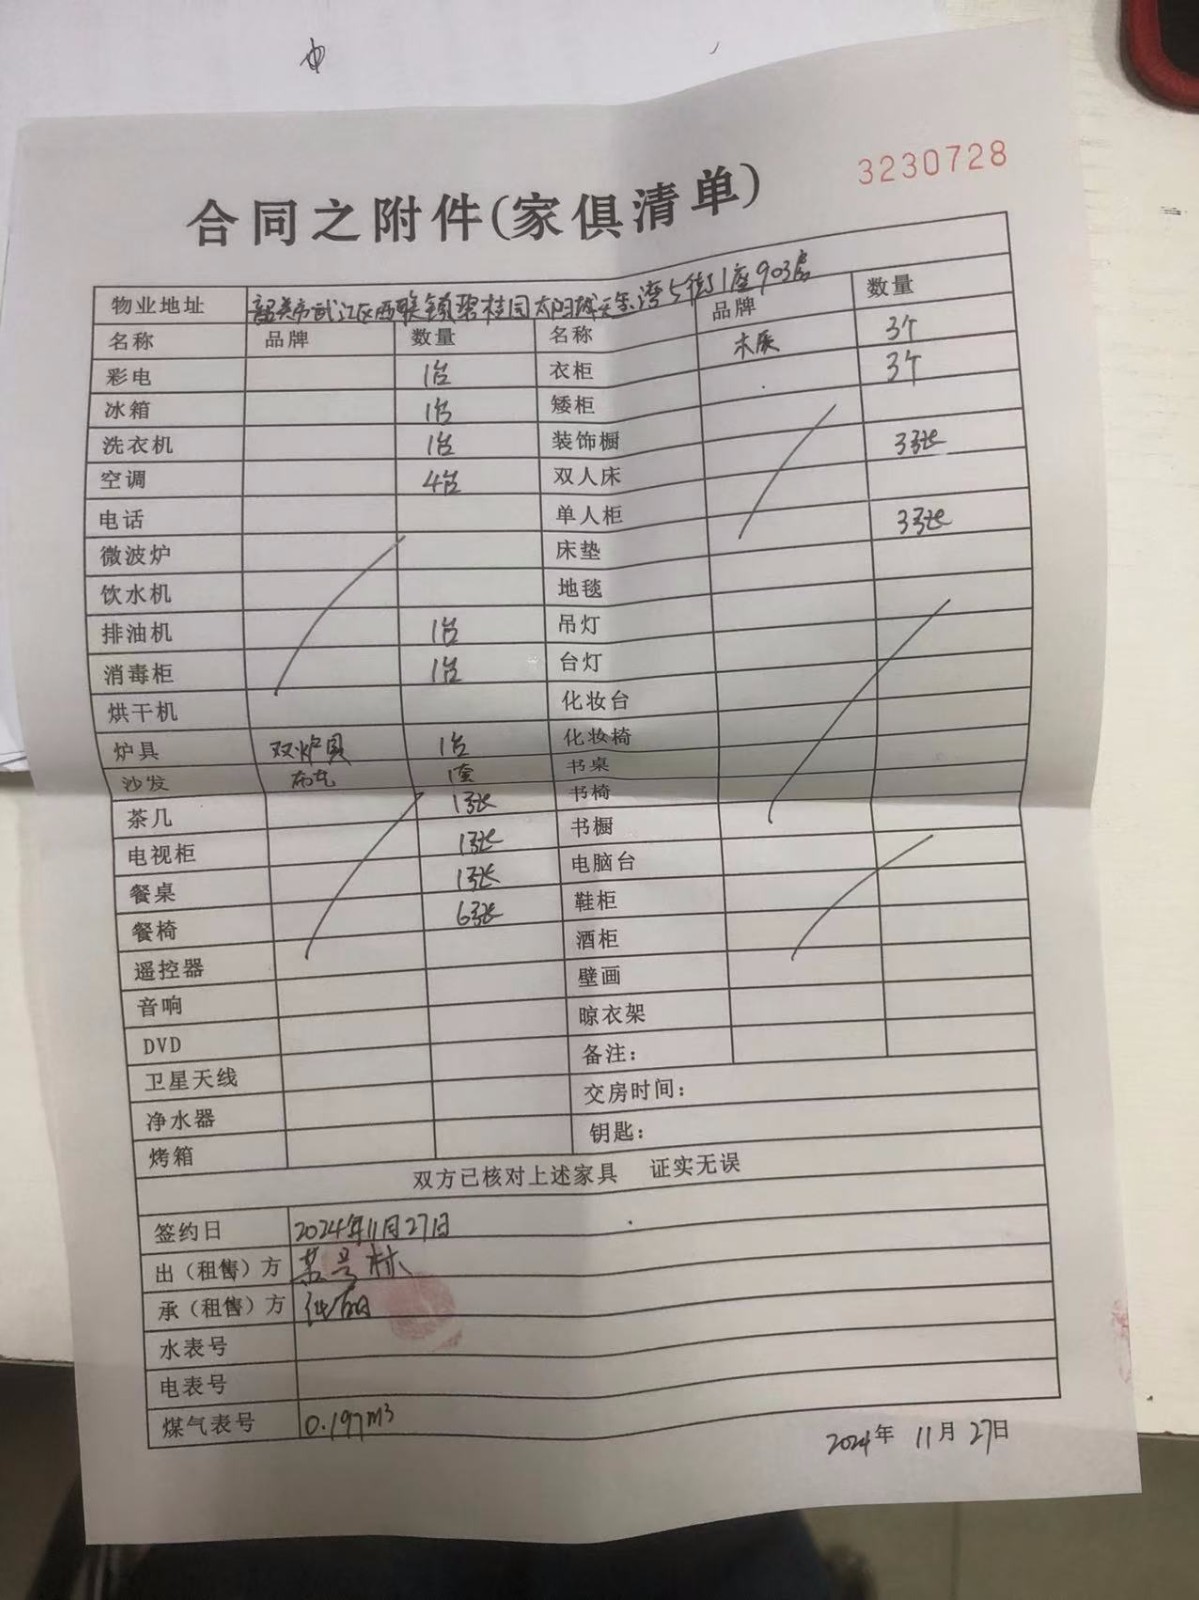 3230728
合同之附件(家俱清单)
物业地址 韶关市武江区西联镇碧桂园太阳城天玺湾5街1座903房
名称 品牌 数量 名称 品牌 数量
彩电 1台 衣柜 3个
冰箱 1台 矮柜 3个
洗衣机 1台 装饰橱
空调 4台 双人床 3张
电话 单人柜
微波炉 床垫 3张
饮水机 地毯
排油机 1台 吊灯
消毒柜 1台 台灯
烘干机 化妆台
炉具 双炉具 1台 化妆椅
沙发 布艺 1套 书桌
茶几 1张 书椅
电视柜 1张 书橱
餐桌 1张 电脑台
餐椅 6张 鞋柜
遥控器 酒柜
音响 壁画
DVD 晾衣架
卫星天线 备注：
净水器 交房时间：
烤箱 钥匙：
双方已核对上述家具 证实无误
签约日 2024年11月27日
出（租售）方
承（租售）方
水表号
电表号
煤气表号 0.197m³
2024年 11月 27日